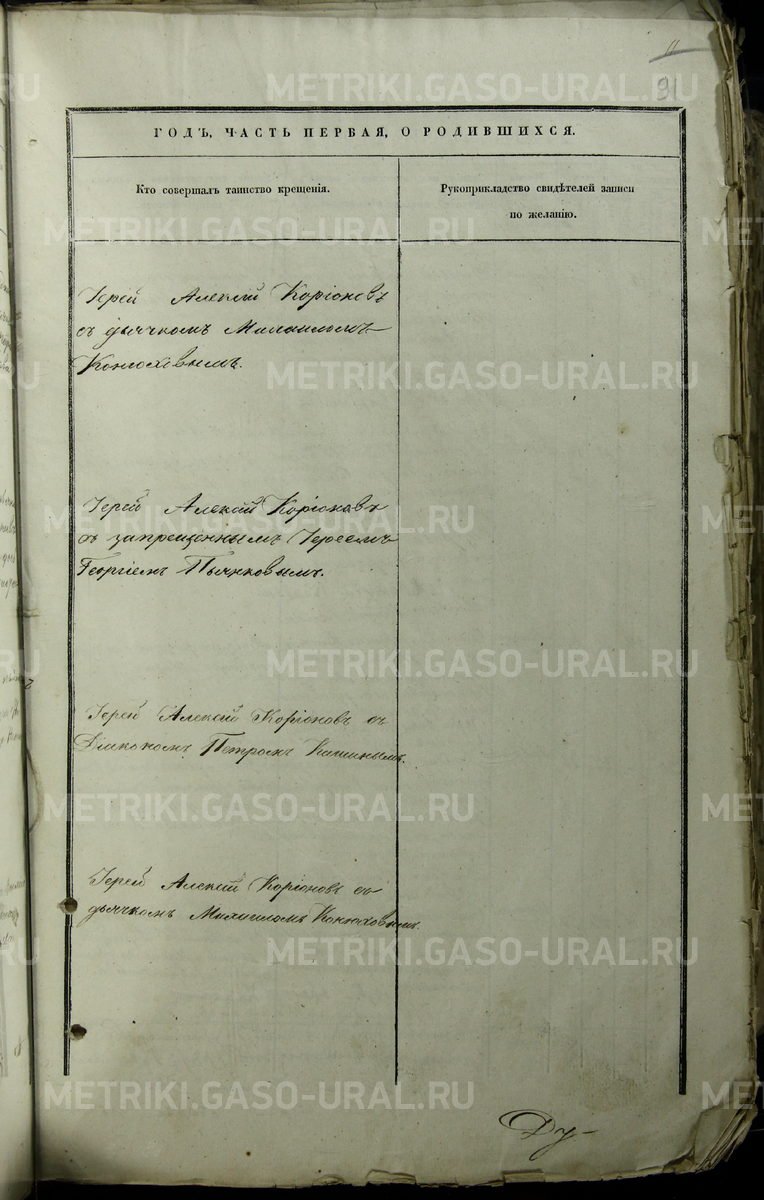 11
91
ГОДЪ, ЧАСТЬ ПЕРВАЯ, О РОДИВШИХСЯ.
Кто совершалъ таинство крещенія.
Рукоприкладство свидѣтелей записи
по желанію.
Іерей Алексій Коріоновъ
съ дьячкомъ Михаиломъ
Конюховымъ.
Іерей Алексій Коріоновъ
съ запрещеннымъ Іереемъ
Георгіемъ Пьянковымъ.
Іерей Алексій Коріоновъ съ
Діакономъ Петромъ
Іерей Алексій Коріоновъ съ
дьячкомъ Михаиломъ Конюховымъ.
Ду-
METRIKI.GASO-URAL.RU